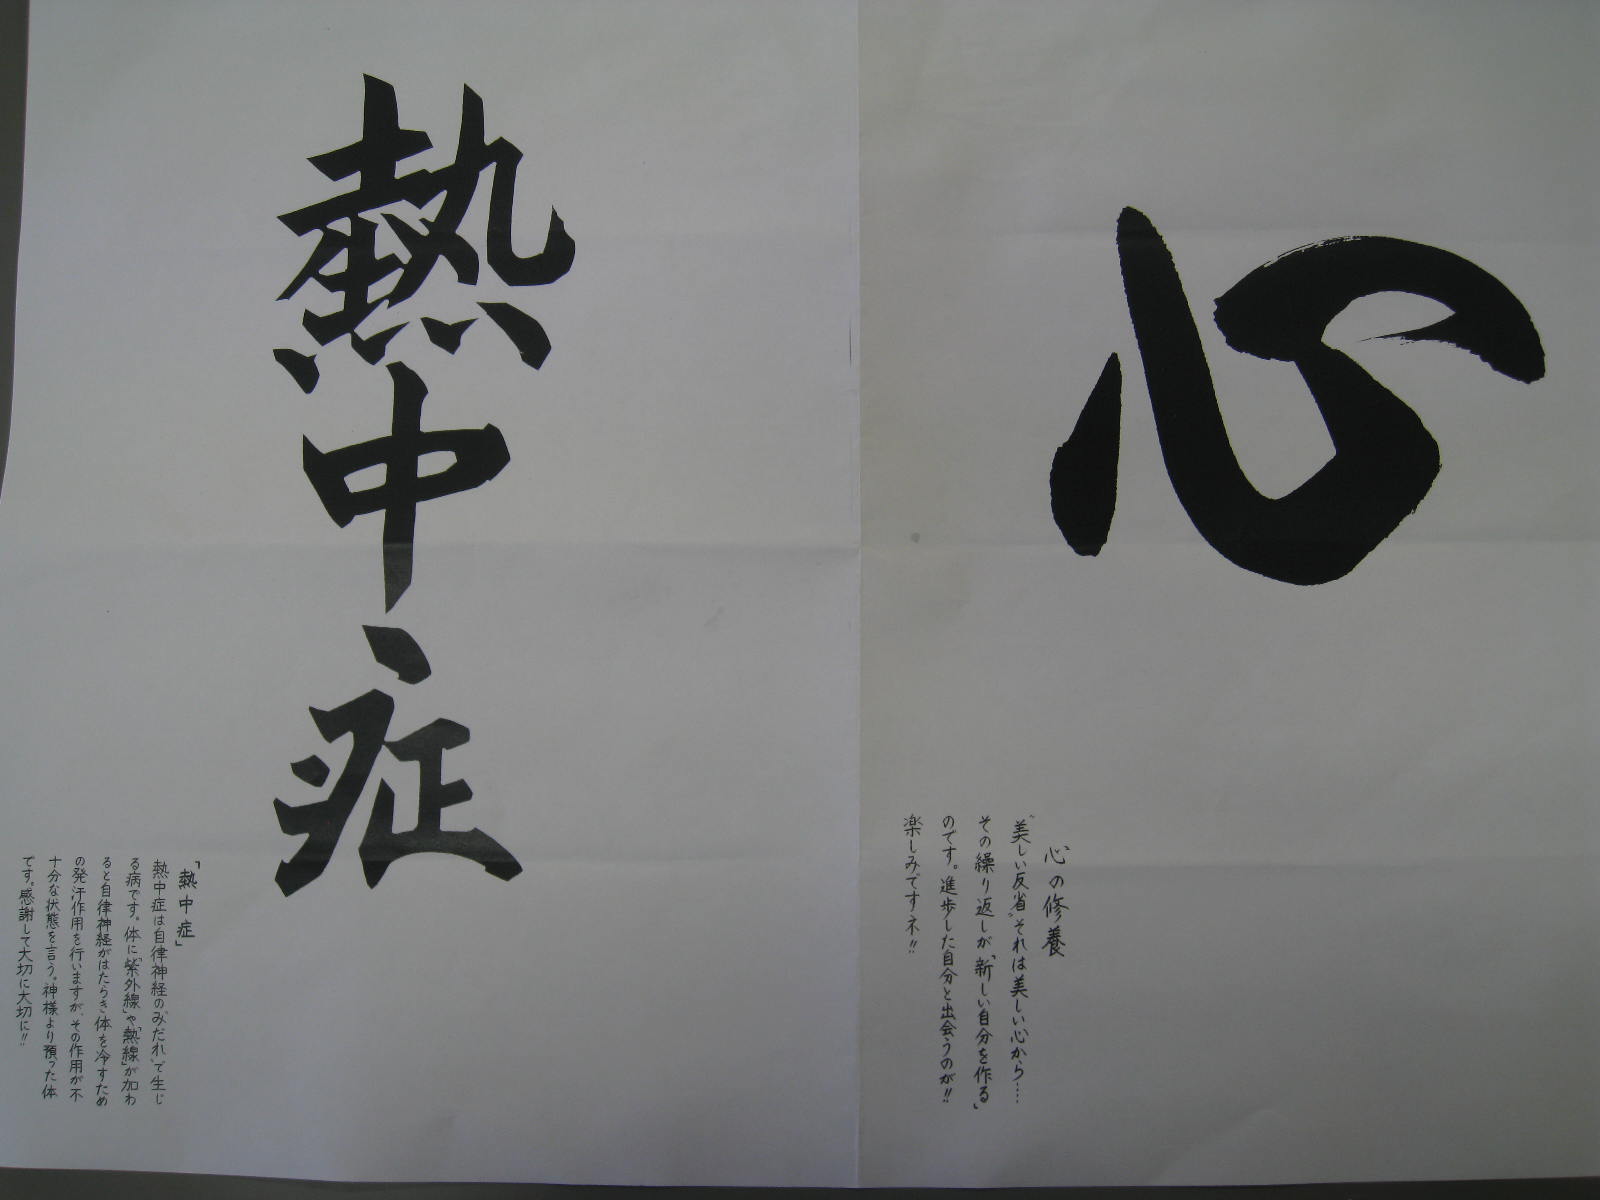 心
心の修養
"美しい反省"それは美しい心から……
その繰り返しが「新しい自分を作る」
のです。進歩した自分と出会うのが!!
楽しみですネ!!
熱中症
「熱中症」
熱中症は自律神経の「みだれ」で生じ
る病です。体に「紫外線」や「熱線」が加わ
ると自律神経がはたらき体を冷すため
の発汗作用を行いますが、その作用が不
十分な状態を言う。神様より預った体
です。感謝して大切に大切に!!